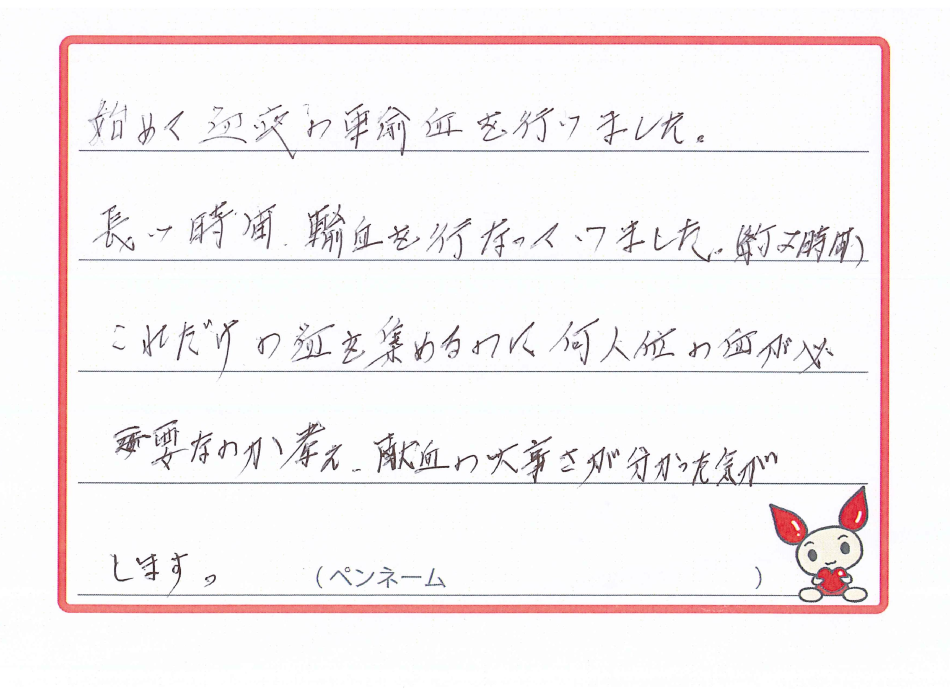 始めて 血液の 輸血を行いました。
長い時間、輸血を行なっていました。(約7時間)
これだけの血を集めるのに何人位の血が必
要なのか考え、献血の大事さが分かった気が
します。 (ペンネーム )